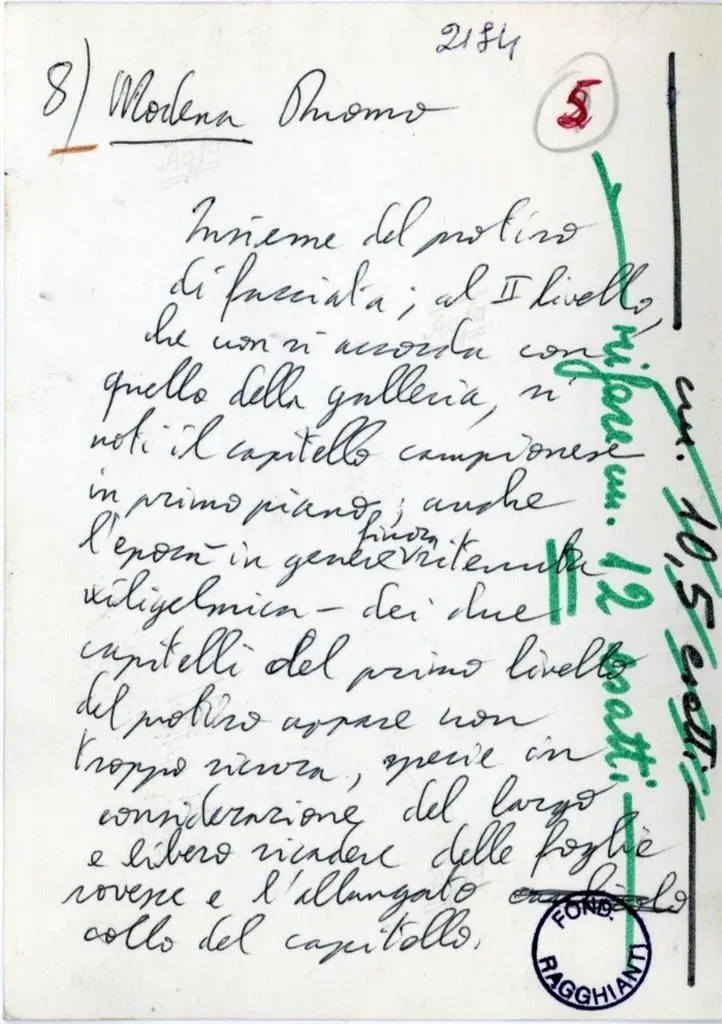 2184
8) Modena Duomo
5
Insieme del protiro
di facciata; al II livello,
che non si accorda con
quello della galleria, si
noti il capitello campionese
in primo piano; anche
l'epoca in genere finora ritenuta
wiligelmica - dei due
capitelli del primo livello
del protiro appare non
troppo sicura, specie in
considerazione del largo
e libero ricadere delle foglie
rovesce e l'allungato
collo del capitello.
rifare cm. 12 esatti
cm. 10,5 esatti
FOND.
RAGGHIANTI